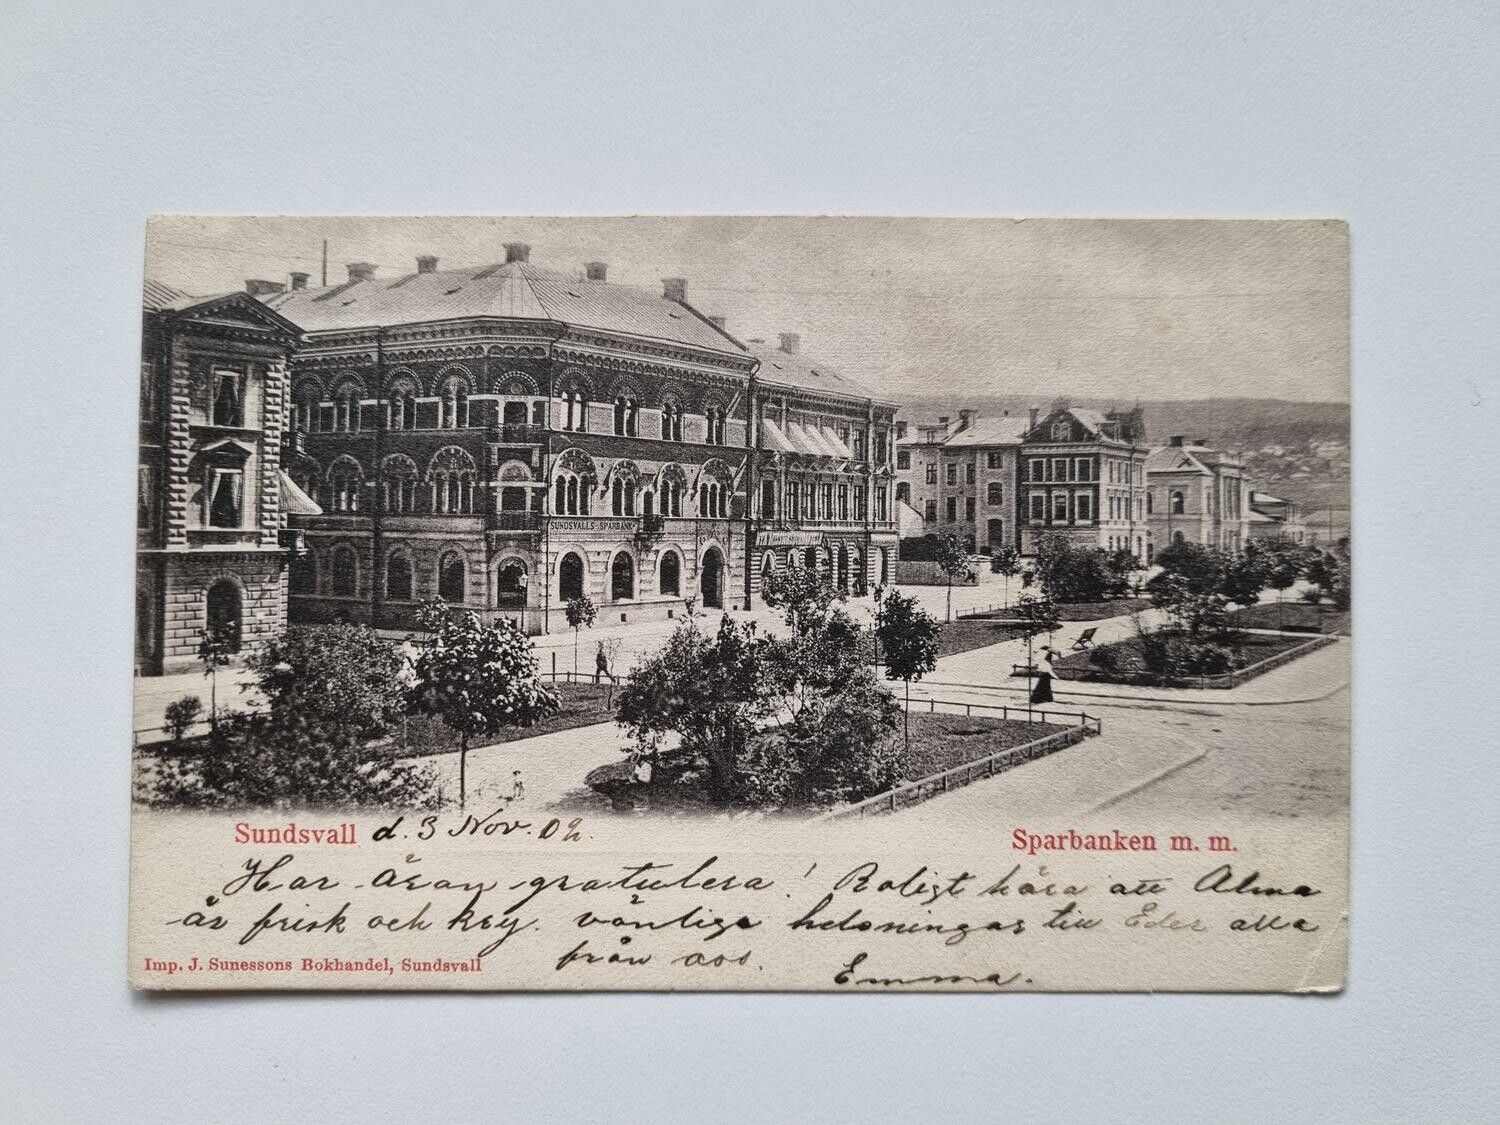 SUNDSVALLS SPARBANK
Sundsvall d. 3 Nov. 02.
Sparbanken m. m.
Har äran gratulera! Roligt höra att Alma
är frisk och kry. vänliga helsningar till Eder alla
från oss.
Emma.
Imp. J. Sunessons Bokhandel, Sundsvall